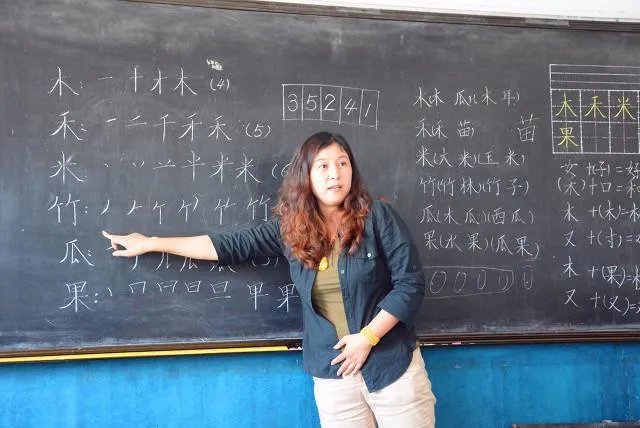 木: 一 十 才 木 (4)
禾: 一 二 千 禾 禾 (5)
米: 丶 丷 半 米 米 (6
竹: 竹
瓜:
果: 丨 冂 日 日 旦 甲 果
3 5 2 4 1
木(木 瓜)(木 耳)
禾(禾 苗) 苗
米(大 米)(玉 米)
竹(竹 林)(竹 子)
瓜(木 瓜)(西 瓜)
果(水 果)(瓜 果)
0 0 0 0 0
木 禾 米
果
女 +(子)=好
(禾)+口=和
木 +(木)=
又 +(寸)=
木 +(果)=
又 +(又)=